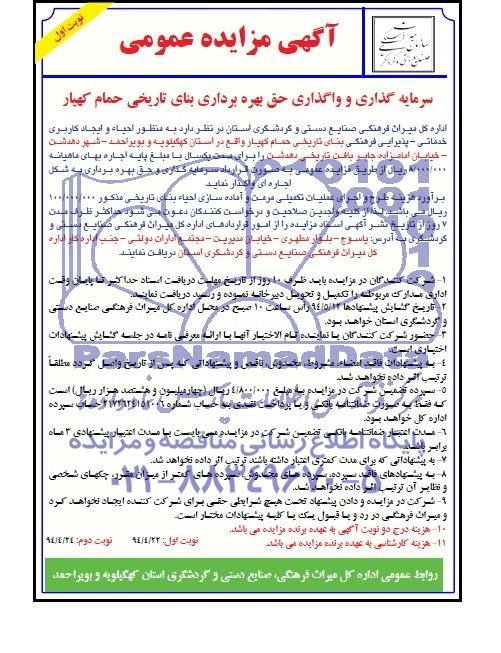 نوبت اول
آگهی مزایده عمومی
سرمایه گذاری و واگذاری حق بهره برداری بنای تاریخی حمام کهیار
اداره کل میراث فرهنگی صنایع دستی و گردشگری استان در نظر دارد به منظور احیاء و ایجاد کاربری
خدماتی - پذیرایی فرهنگی بنای تاریخی حمام کهیار واقع در استان کهگیلویه و بویراحمد - شهر دهدشت
- خیابان امامزاده جابر بافت تاریخی دهدشت را برای مدت یکسال با مبلغ پایه اجاره بهای ماهیانه
۸/۰۰۰/۰۰۰ ریال از طریق مزایده عمومی به صورت قرارداد سرمایه گذاری و حق بهره برداری به شکل
اجاره ای واگذار نماید.
برآورد هزینه طرح و اجرای عملیات تکمیلی مرمت و آماده سازی احیاء بنای تاریخی مذکور ۱۰۰/۰۰۰/۰۰۰
ریال می باشد. لذا از کلیه واجدین صلاحیت و درخواست کنندگان دعوت می شود حداکثر ظرف مدت
۷ روز از تاریخ نشر آگهی اسناد مزایده را از امور قراردادهای اداره کل میراث فرهنگی صنایع دستی و
گردشگری به آدرس: یاسوج - بلوار مطهری - خیابان مدیریت - مجتمع ادارات دولتی - جنب اداره کار اداره
کل میراث فرهنگی صنایع دستی و گردشگری استان دریافت نمایند.
۱- شرکت کنندگان در مزایده باید ظرف ۱۰ روز از تاریخ مهلت دریافت اسناد حداکثر تا پایان وقت
اداری مدارک مربوطه را تکمیل و تحویل دبیرخانه نموده و رسید دریافت نمایند.
۲- تاریخ گشایش پیشنهادها ۹۴/۵/۱۲ رأس ساعت ۱۰ صبح در محل اداره کل میراث فرهنگی صنایع دستی
و گردشگری استان خواهد بود.
۳- حضور شرکت کنندگان یا نماینده تام الاختیار آنها با ارائه معرفی نامه در جلسه گشایش پیشنهادات
اختیاری است.
۴- به پیشنهادات فاقد امضاء، مشروط، مخدوش، ناقص و پیشنهاداتی که پس از تاریخ واصل گردد مطلقاً
ترتیب اثر داده نخواهد شد.
۵- سپرده تضمین شرکت در مزایده به مبلغ ۴/۸۰۰/۰۰۰ ریال (چهارمیلیون و هشتصد هزار ریال) است
که فقط به صورت ضمانتنامه بانکی و یا پرداخت نقدی به حساب شماره حساب سپرده
اداره کل خواهد بود.
۶- مدت اعتبار ضمانتنامه بانکی تضمین شرکت در مزایده می بایست با مدت اعتبار پیشنهادی ۳ ماه
برابر باشد.
۷- به پیشنهاداتی که برای مدت کمتری اعتبار داشته باشند ترتیب اثر داده نخواهد شد.
۸- به پیشنهادهای فاقد سپرده، سپرده های مخدوش، سپرده های کمتر از میزان مقرر، چکهای شخصی
و نظایر آن ترتیب اثر داده نخواهد شد.
۹- شرکت در مزایده و دادن پیشنهاد تحت هیچ شرایطی حقی برای شرکت کننده ایجاد نخواهد کرد
و میراث فرهنگی در رد و یا قبول یک یا کلیه پیشنهادات مختار است.
۱۰- هزینه درج دو نوبت آگهی به عهده برنده مزایده می باشد.
۱۱- هزینه کارشناسی به عهده برنده مزایده می باشد.
نوبت اول: ۹۴/۴/۲۲ نوبت دوم: ۹۴/۴/۲۴
روابط عمومی اداره کل میراث فرهنگی، صنایع دستی و گردشگری استان کهگیلویه و بویراحمد
ParsNamadData
پایگاه اطلاع رسانی مناقصه و مزایده